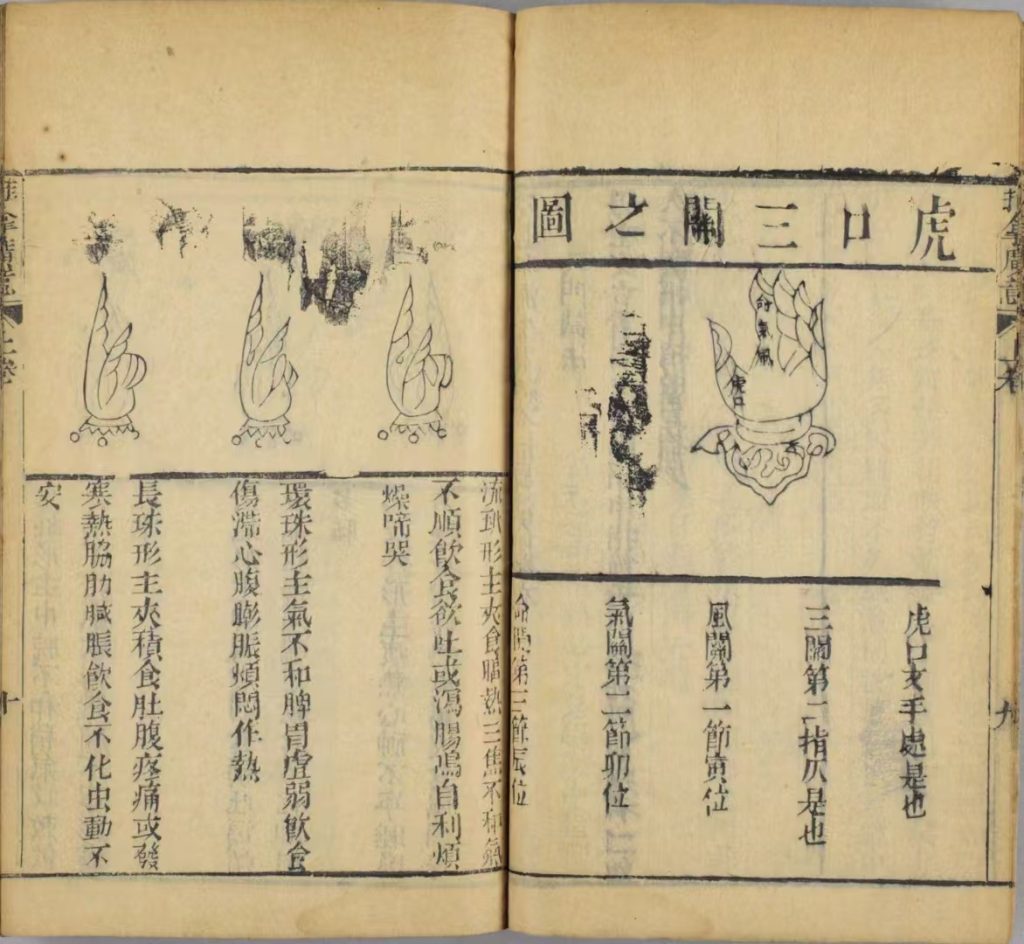 虎口三關之圖
命氣風
虎口
虎口叉手處是也
三關第二指仄是也
風關第一節寅位
氣關第二節卯位
命關第三節辰位
九
流珠形主夾食膈熱三焦不和氣
不順飲食欲吐或瀉腸鳴自利煩
燥啼哭
環珠形主氣不和脾胃虛弱飲食
傷滯心腹膨脹煩悶作熱
長珠形主夾積食肚腹疼痛或發
寒熱脇肋臟脹飲食不化虫動不
安
上卷
十